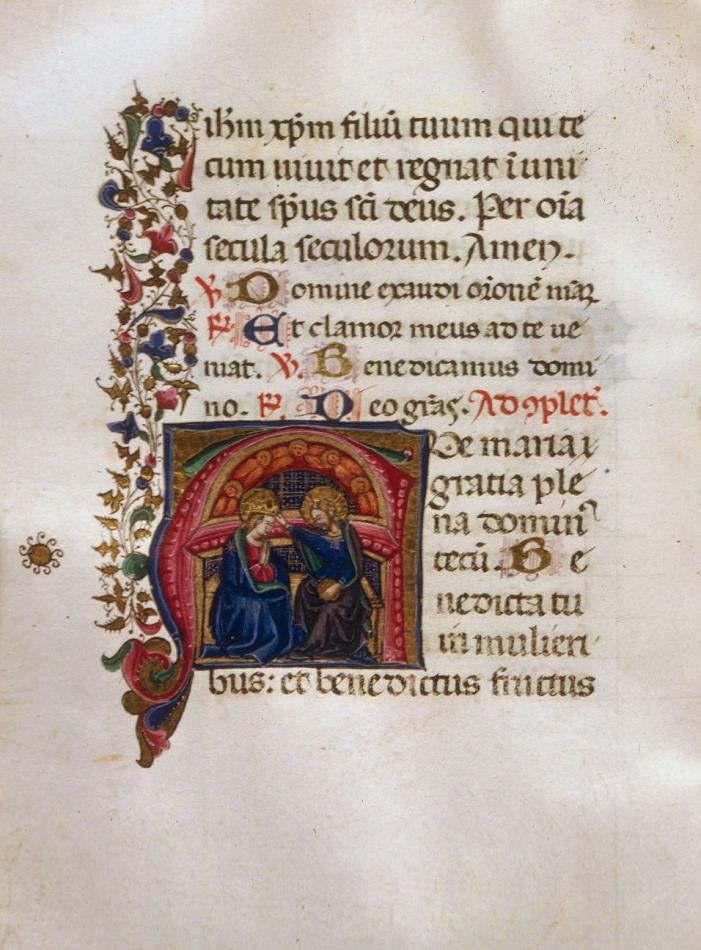 ihm xpm filiū tuum qui te
cum uiuit et regnat ī uni
tate sp̄us sc̄i deus. Per oīa
secula seculorum. Amen.
℣. Domine exaudi orōionē
℟. Et clamor meus ad te ue
niat. ℣. Benedicamus domi
no. ℟. Deo grās. Ad ꝯplet.
Aue maria
gratia ple
na domin
tecū. Be
nedicta tu
in mulieri
bus: et benedictus fructus